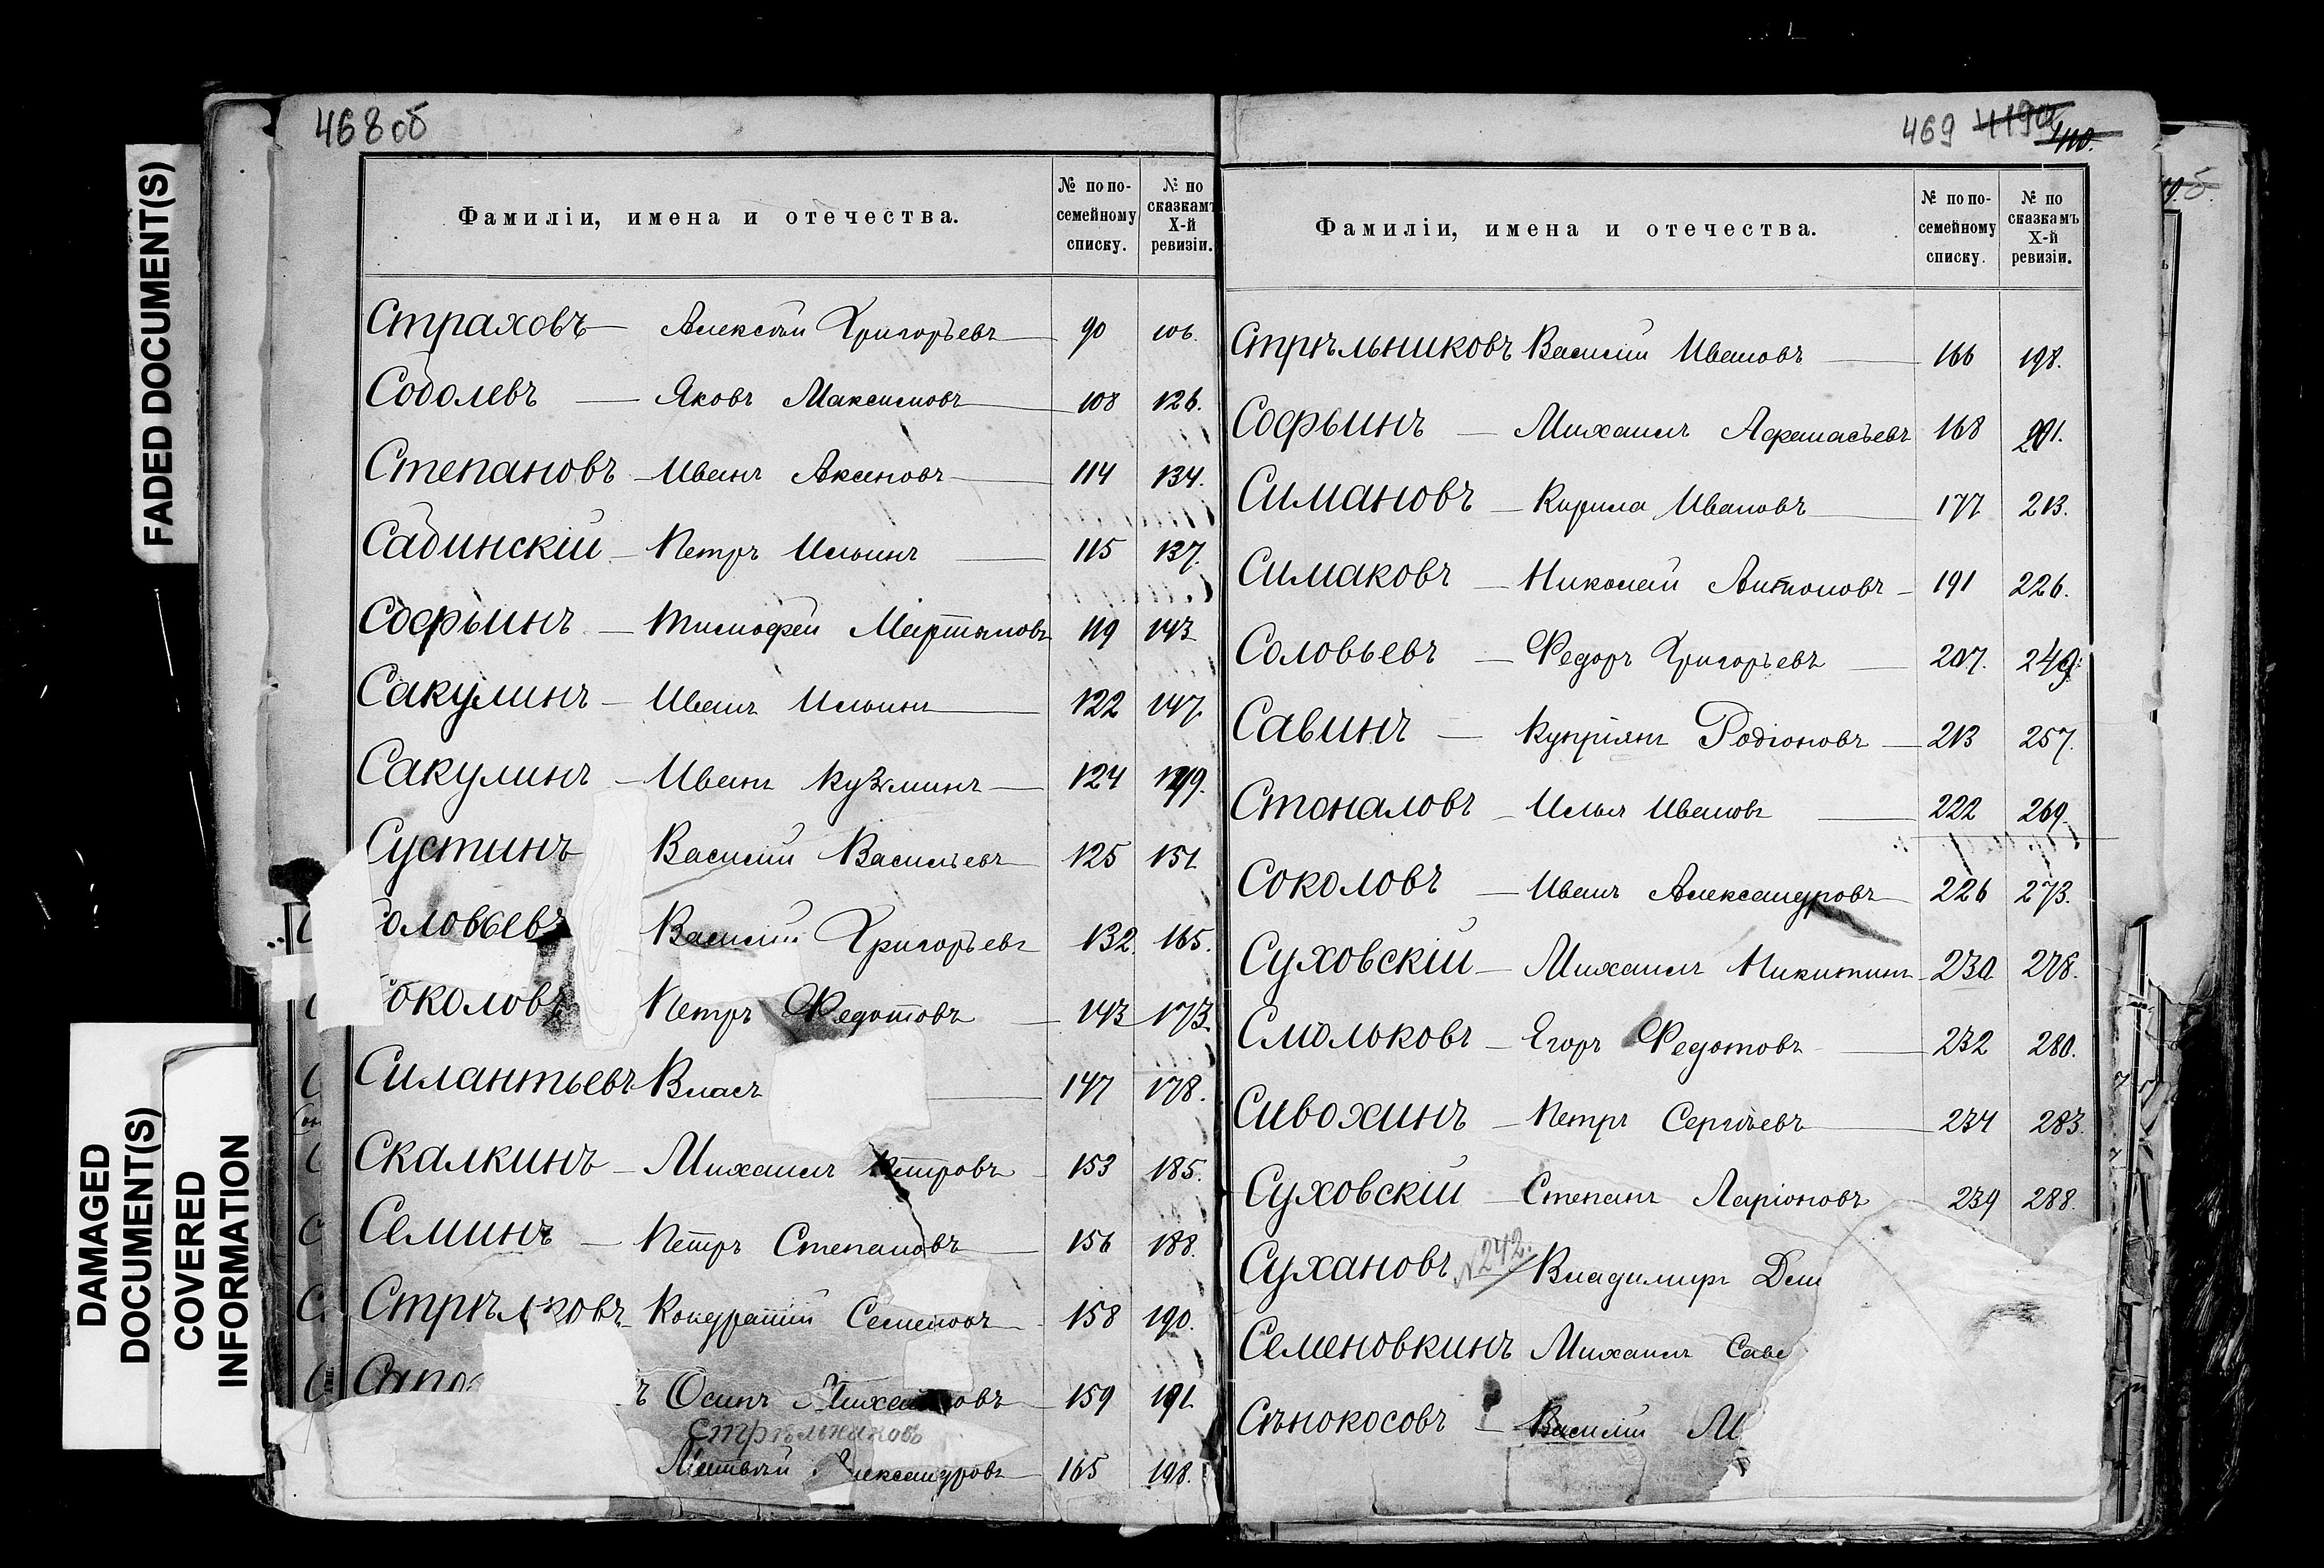 FADED DOCUMENT(S)
DAMAGED DOCUMENT(S)
COVERED INFORMATION
468об
Фамиліи, имена и отечества.
№ по по-семейному списку.
№ по сказкамъ X-й ревизіи.
Страховъ — Алексѣй Григорьевъ — 90 106.
Соболевъ — Яковъ Максимовъ — 108 126.
Степановъ — Иванъ Аксеновъ — 114 134.
Сабинскій — Петръ Ильинъ — 115 137.
Софьинъ — Тимофей Мартыновъ 119 143
Сакулинъ — Иванъ Ильинъ — 122 147.
Сакулинъ — Иванъ Кузьминъ — 124 149.
Сустинъ Василій Васильевъ — 125 151
оловьевъ Василій Григорьевъ 132. 165.
околовъ Петръ Федотовъ — 143 173.
Силантьевъ Власъ — 147 178.
Скалкинъ — Михаилъ Петровъ — 153 185.
Семинъ — Петръ Степановъ — 156 188.
Стрѣлковъ — Кондратій Семеновъ — 158 190.
ъ Осипъ Михайловъ — 159 191.
Стрѣльниковъ
Матвѣй Александровъ — 165 198.
469 419а 410.
Фамиліи, имена и отечества.
№ по по-семейному списку.
№ по сказкамъ X-й ревизіи.
Стрѣльниковъ Василій Ивановъ — 166 198.
Софьинъ — Михаилъ Афанасьевъ 168 201.
Симановъ — Кирила Ивановъ — 177 213.
Симаковъ — Николай Антоновъ — 191 226.
Соловьевъ — Федоръ Григорьевъ — 207. 249.
Савинъ — Купріянъ Родіоновъ — 213 257.
Стоналовъ — Илья Ивановъ — 222 269.
Соколовъ — Иванъ Александровъ — 226 273.
Суховскій — Михаилъ Никитинъ — 230 278.
Смольковъ — Егоръ Федотовъ — 232 280.
Сивохинъ — Петръ Сергѣевъ — 234 283.
Суховскій — Степанъ Ларіоновъ 239 288.
Сухановъ N242. Владимиръ
Семеновкинъ Михаилъ Саве
Сѣнокосовъ — Василій М